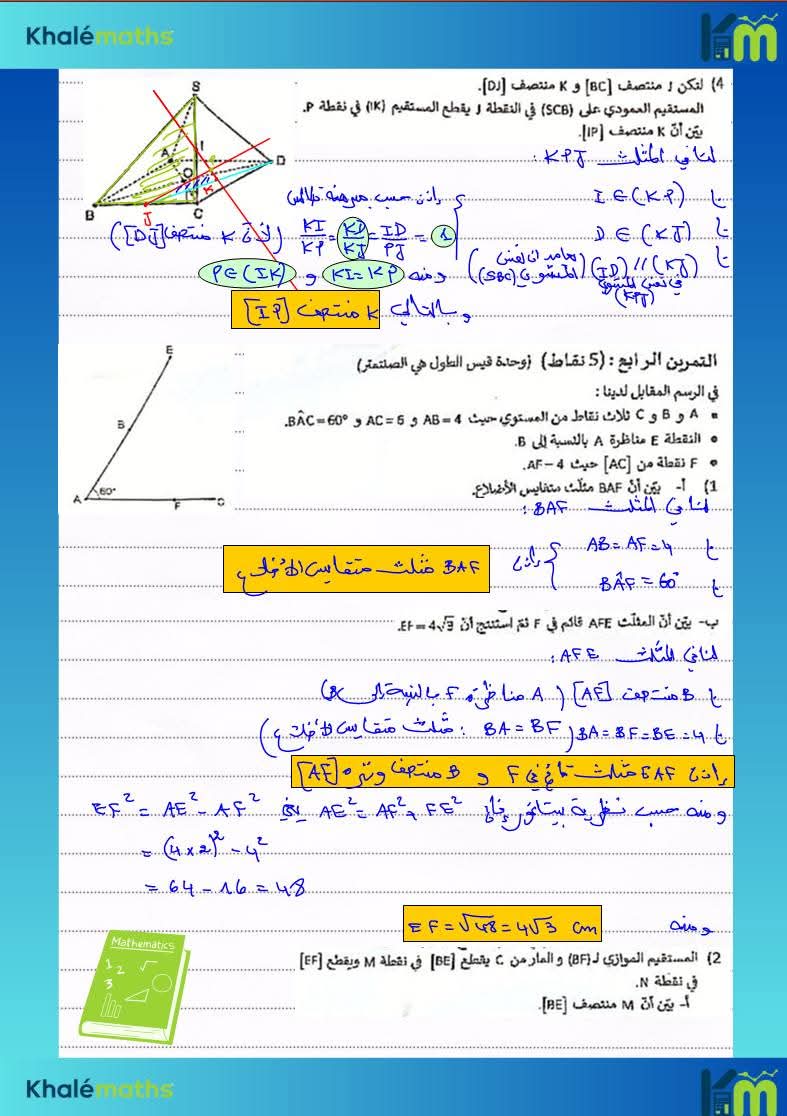 Khalémaths
Km
4) لتكن J منتصف [BC] و K منتصف [DJ].
المستقيم العمودي على (SCB) في النقطة J يقطع المستقيم (IK) في نقطة P.
بيّن أنّ K منتصف [IP].
لنا في المثلث KPJ :
S
A
I
D
O
K
B
J
C
I ∈ (KP)
D ∈ (KJ)
(ID) // (KJ)
في نفس المستوي (KPJ)
إذن حسب مبرهنة طالس
KI/KP = KD/KJ = ID/PJ = 1 (لأن K منتصف [DJ])
ومنه KI = KP و P ∈ (IK)
وبالتالي K منتصف [IP]
التمرين الرابع : (5 نقاط) (وحدة قيس الطول هي الصنتمتر)
في الرسم المقابل لدينا :
• A و B و C ثلاث نقاط من المستوي حيث AB = 4 و AC = 6 و BÂC = 60°.
• النقطة E مناظرة A بالنسبة إلى B.
• F نقطة من [AC] حيث AF = 4.
E
B
A
60°
F
C
1) أ- بيّن أنّ BAF مثلّث متقايس الأضلاع.
لنا في المثلث BAF :
AB = AF = 4
BÂF = 60°
إذن
BAF مثلث متقايس الأضلاع
ب- بيّن أنّ المثلّث AFE قائم في F ثمّ استنتج أنّ EF = 4√3.
لنا في المثلث AFE :
B منتصف [AE] (A مناظرة F بالنسبة إلى B)
BA = BF = BE = 4 (BA = BF : مثلث متقايس الأضلاع)
إذن EAF مثلث قائم في F و B منتصف وتره [AE]
ومنه حسب نظرية بيتاغور فإن AE² = AF² + FE² يعني EF² = AE² - AF²
= (4×2)² - 4²
= 64 - 16 = 48
ومنه EF = √48 = 4√3 cm
Mathematics
1
2
3
2) المستقيم الموازي لـ (BF) و المارّ من C يقطع [BE] في نقطة M ويقطع [EF]
في نقطة N.
أ- بيّن أنّ M منتصف [BE].
Khalémaths
Km